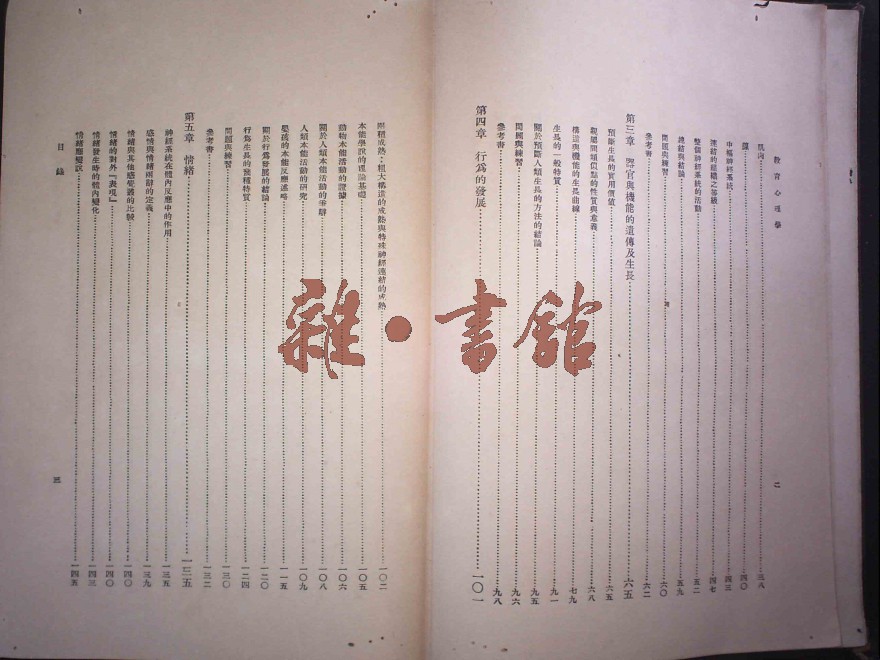 教育心理學
二
肌肉……三八
腺……四〇
中樞神經系統……四三
連結的組織之等級……四七
整個神經系統的活動……五二
連結與結論……五九
問題與練習……六〇
參考書……六二
第三章 器官與機能的遺傳及生長……六五
預斷生長的實用價值……六五
親屬間類似點的性質與意義……六八
構造與機能的生長曲線……七九
生長的一般特質……九一
關於預斷人類生長的方法的結論……九五
問題與練習……九六
參考書……九八
第四章 行為的發展……一〇一
兩種成熟:粗大構造的成熟與特殊神經連結的成熟……一〇二
本能學說的理論基礎……一〇五
動物本能活動的證據……一〇六
關於人類本能活動的爭辯……一〇八
人類本能活動的研究……一〇九
嬰孩的本能反應述略……一一五
關於行為發展的結論……一二〇
行為生長的幾種特質……一二四
問題與練習……一三〇
參考書……一三二
第五章 情緒……一三五
神經系統在體內反應中的作用……一三五
感情與情緒兩辭的定義……一三九
情緒與其他感受器的比較……一四〇
情緒的對外「表現」……一四〇
情緒發生時的體內變化……一四三
情緒應變說……一四五
目錄
三
雜·書館